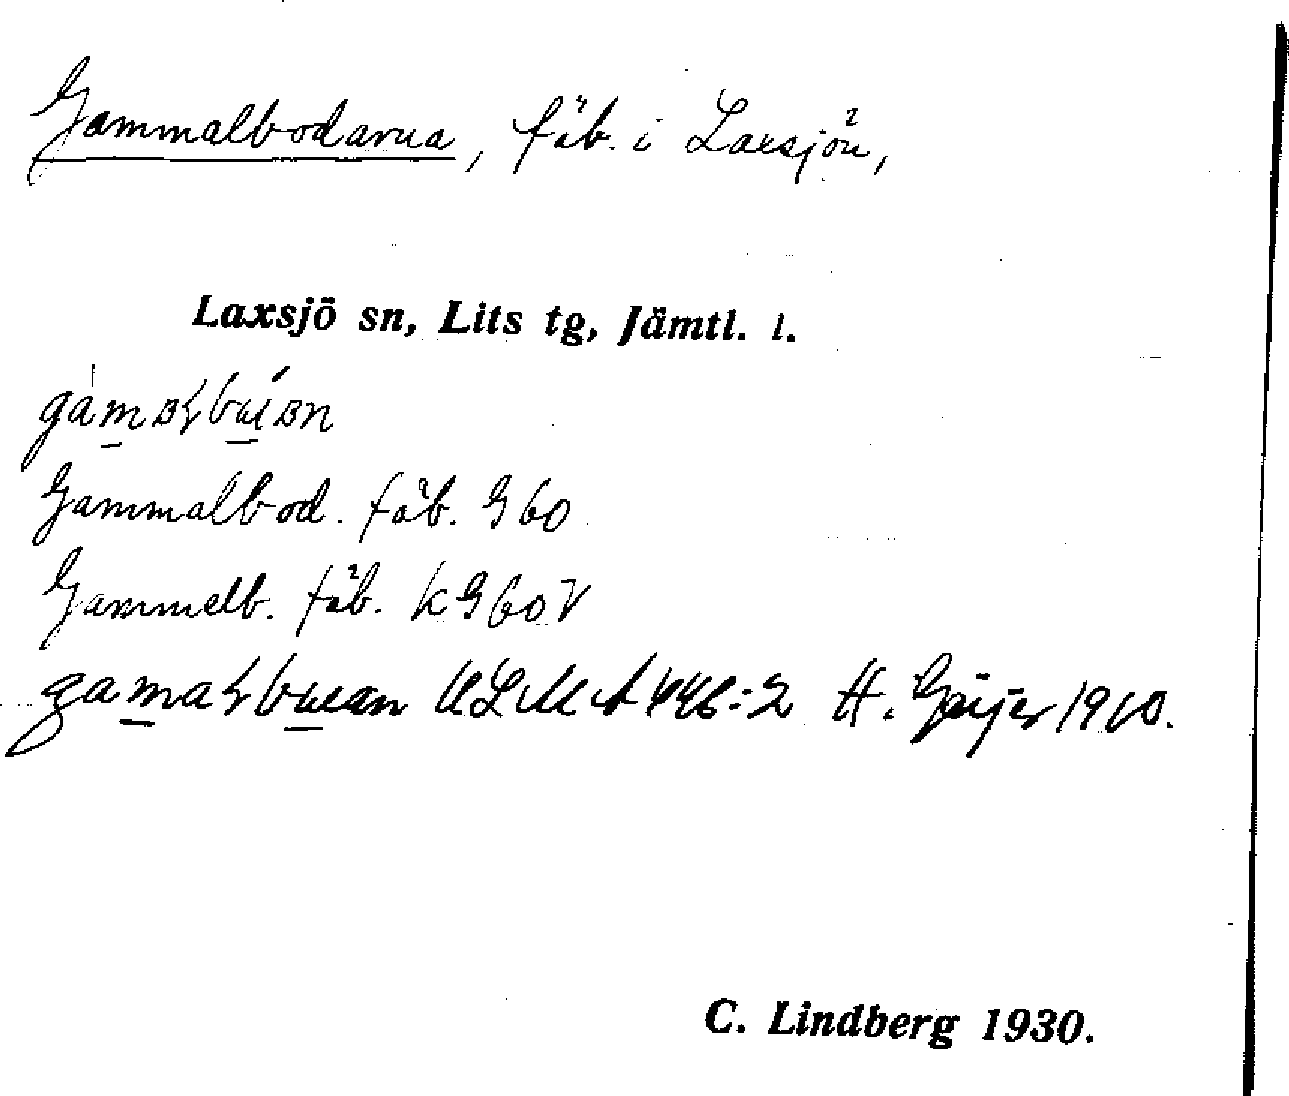 Gammalbodarna, fäb. i Laxsjön,
Laxsjö sn, Lits tg, Jämtl. l.
Gammalbod. fäb. G60
Gammelb. fäb. kG60V
ULMA 446:2 H. Geijer 1910.
C. Lindberg 1930.